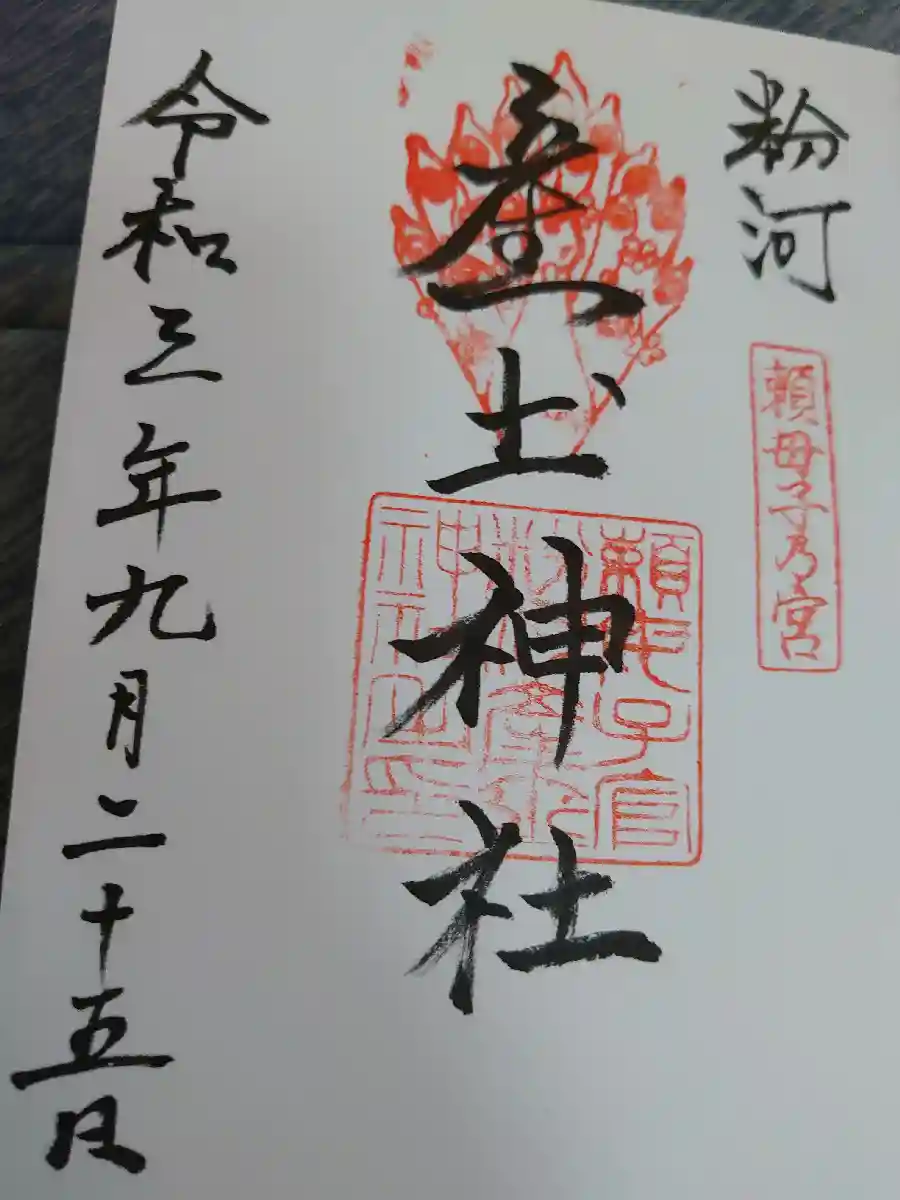 粉河
頼母子乃宮
産土神社
頼母子宮
粉河産土
神社之印
令和三年九月二十五日